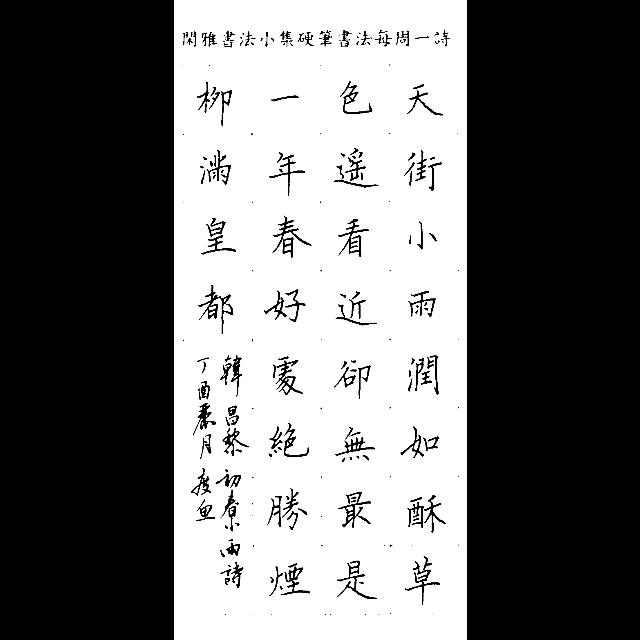 閑雅書法小集硬筆書法每周一詩
天街小雨潤如酥草
色遙看近卻無最是
一年春好處絕勝煙
柳滿皇都
韓昌黎初春小雨詩
丁酉月瘦鱼